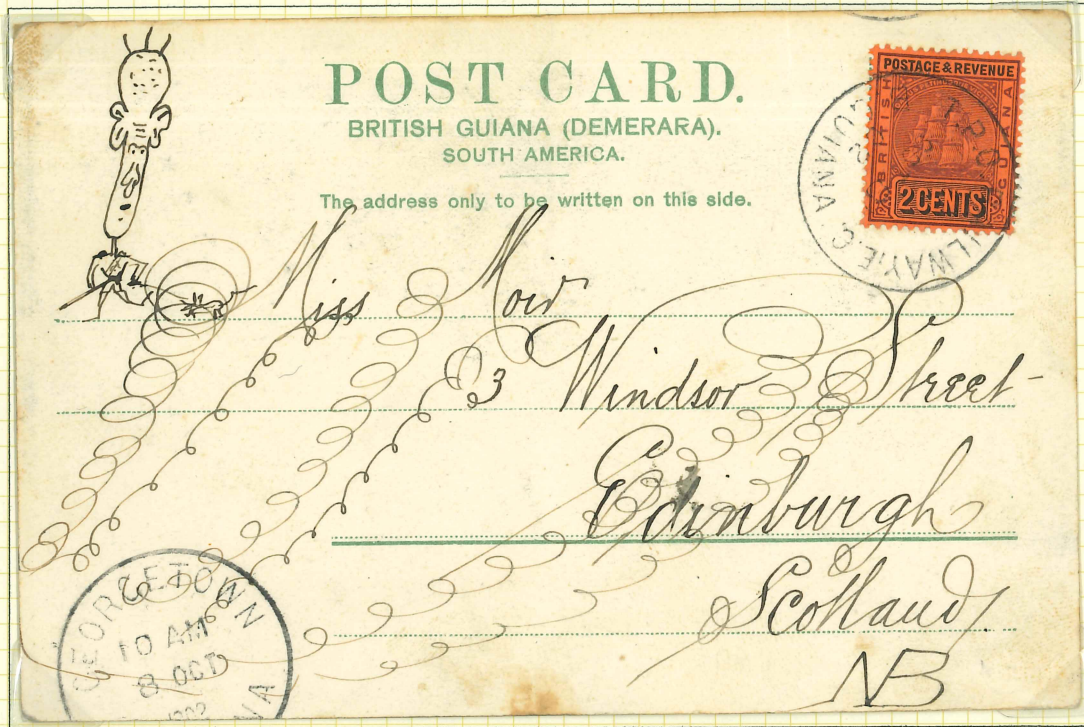 POST CARD.
BRITISH GUIANA (DEMERARA).
SOUTH AMERICA.
The address only to be written on this side.
POSTAGE & REVENUE
BRITISH
GUIANA
2 CENTS
T.P.O.
RAILWAY. E.C.
GUIANA
Miss Moir
3 Windsor Street
Edinburgh
Scotland
NB
GEORGETOWN
10 AM
8 OCT